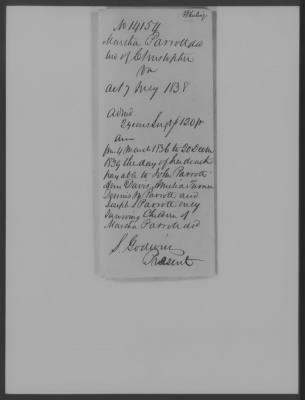 No 14154
Martha Parrott decd
wid of Christopher
Va
act 7 July 1838
Admd
2 years Inf @ $120 pr
ann
fm 4 March 1836 to 30
1839 the day of her death
payable to John Parrott
Davis, Amelia Turner
Dennis W Parrott and
Joseph S Parrott only
Surviving Children of
Martha Parrott decd
S. Godwin
Present